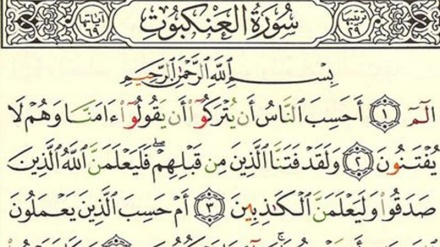 ترتيبها ٢٩ سُورَةُ الْعَنْكَبُوت آياتها ٦٩
بِسْمِ اللَّهِ الرَّحْمَٰنِ الرَّحِيمِ
الٓمٓ ۝١ أَحَسِبَ النَّاسُ أَن يُتْرَكُوٓا۟ أَن يَقُولُوٓا۟ ءَامَنَّا وَهُمْ لَا
يُفْتَنُونَ ۝٢ وَلَقَدْ فَتَنَّا الَّذِينَ مِن قَبْلِهِمْ ۖ فَلَيَعْلَمَنَّ اللَّهُ الَّذِينَ
صَدَقُوا۟ وَلَيَعْلَمَنَّ الْكَٰذِبِينَ ۝٣ أَمْ حَسِبَ الَّذِينَ يَعْمَلُونَ